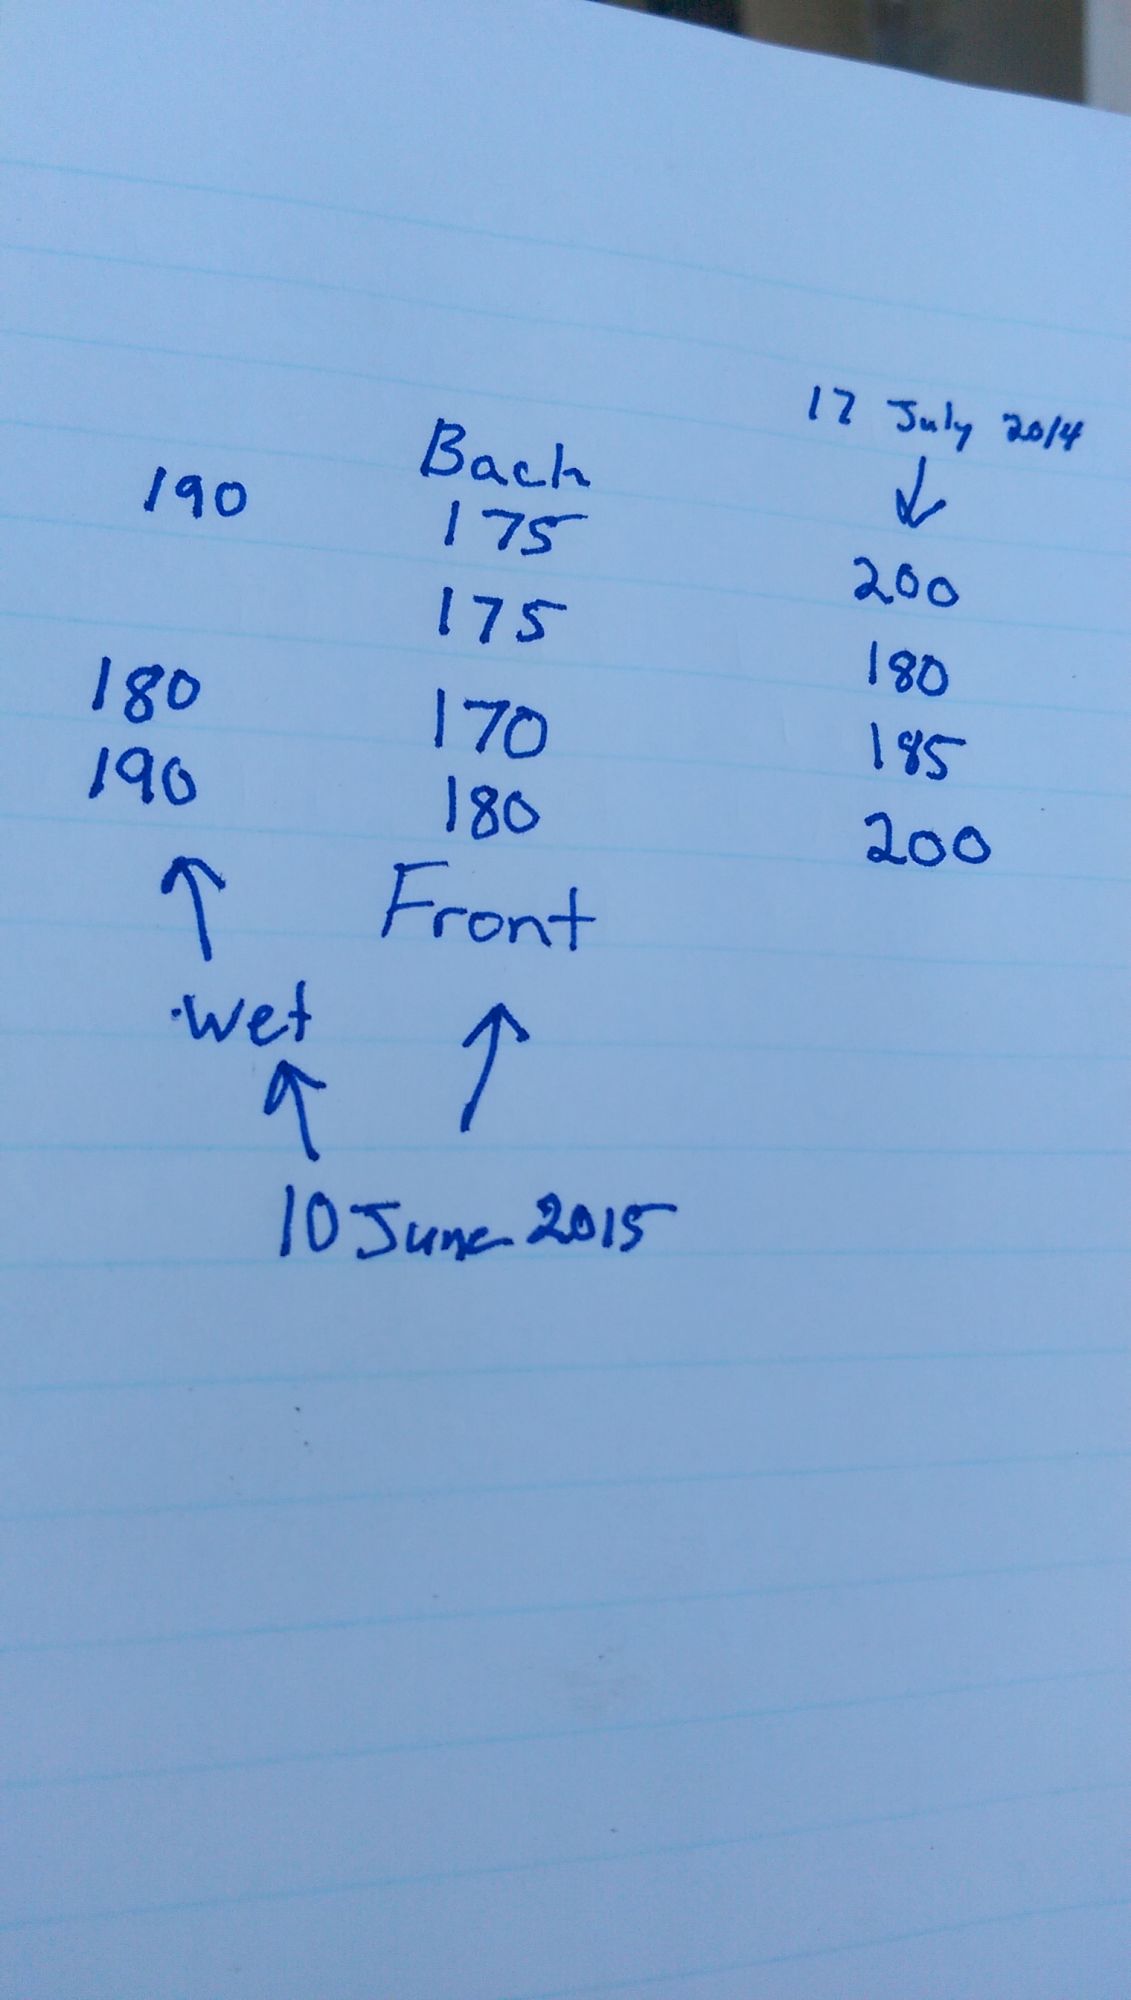 17 July 2014
Back
190 175 200
175 180
180 170 185
190 180 200
Front
Wet
10 June 2015